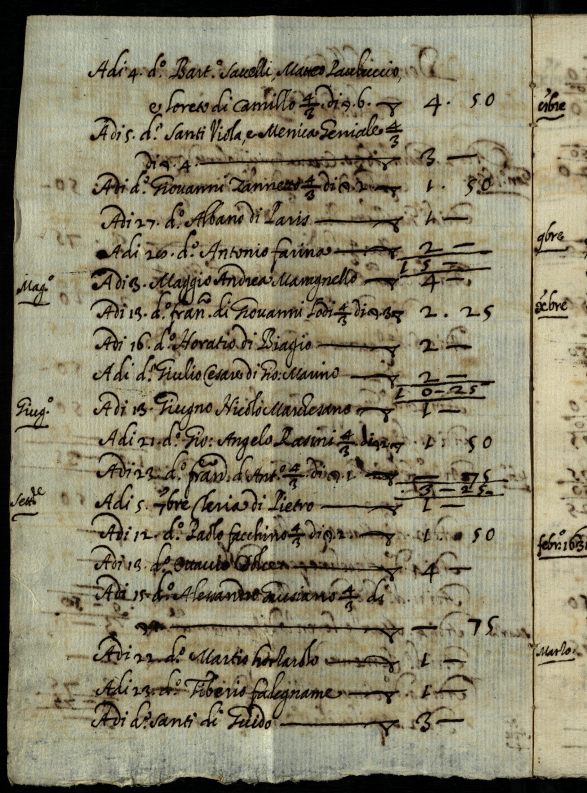 Adi 4. d.º Bart.º Savelli, Matteo Pauluccio,
e Loreto di Camillo 4/3 di 6. 4. 50
Adi 5. d.º Santi Viola, e Menica Geniale 4/3
di 4. 3 —
Adi d.º Giovanni Zannetto 4/3 di 2. 1. 50
Adi 27. d.º Albano di Paris 1 —
Adi 20. d.º Antonio farina 2 —
15 —
Mag.º Adi 3. Maggio Andrea Maragnello 4 —
Adi 13. d.º fran.º di Giovanni 4/3 di 3 2. 25
Adi 16. d.º Horatio di Biagio 2 —
Adi d.º Giulio Cesare di Gio: Marino 2 —
10 — 25
Giug.º Adi 13. Giugno Nicolò Marchesano 1 —
Adi 21. d.º Gio: Angelo 4/3 di 2 1. 50
Adi 23. d.º fran.º d'Ant.º 4/3 di 1. — 75
3 — 25
Adi 5. 7bre Cleria di Pietro 1 —
Adi 12. d.º Paolo facchino 4/3 di 2. 1. 50
Adi 13. d.º 4 —
Adi 15. d.º Alessandro 4/3 di
— 75
Adi 22. d.º Martio hortolano 1 —
Adi 23. d.º Tiberio falegname 1 —
Adi d.º Santi di Guido 3 —
9bre
Marzo